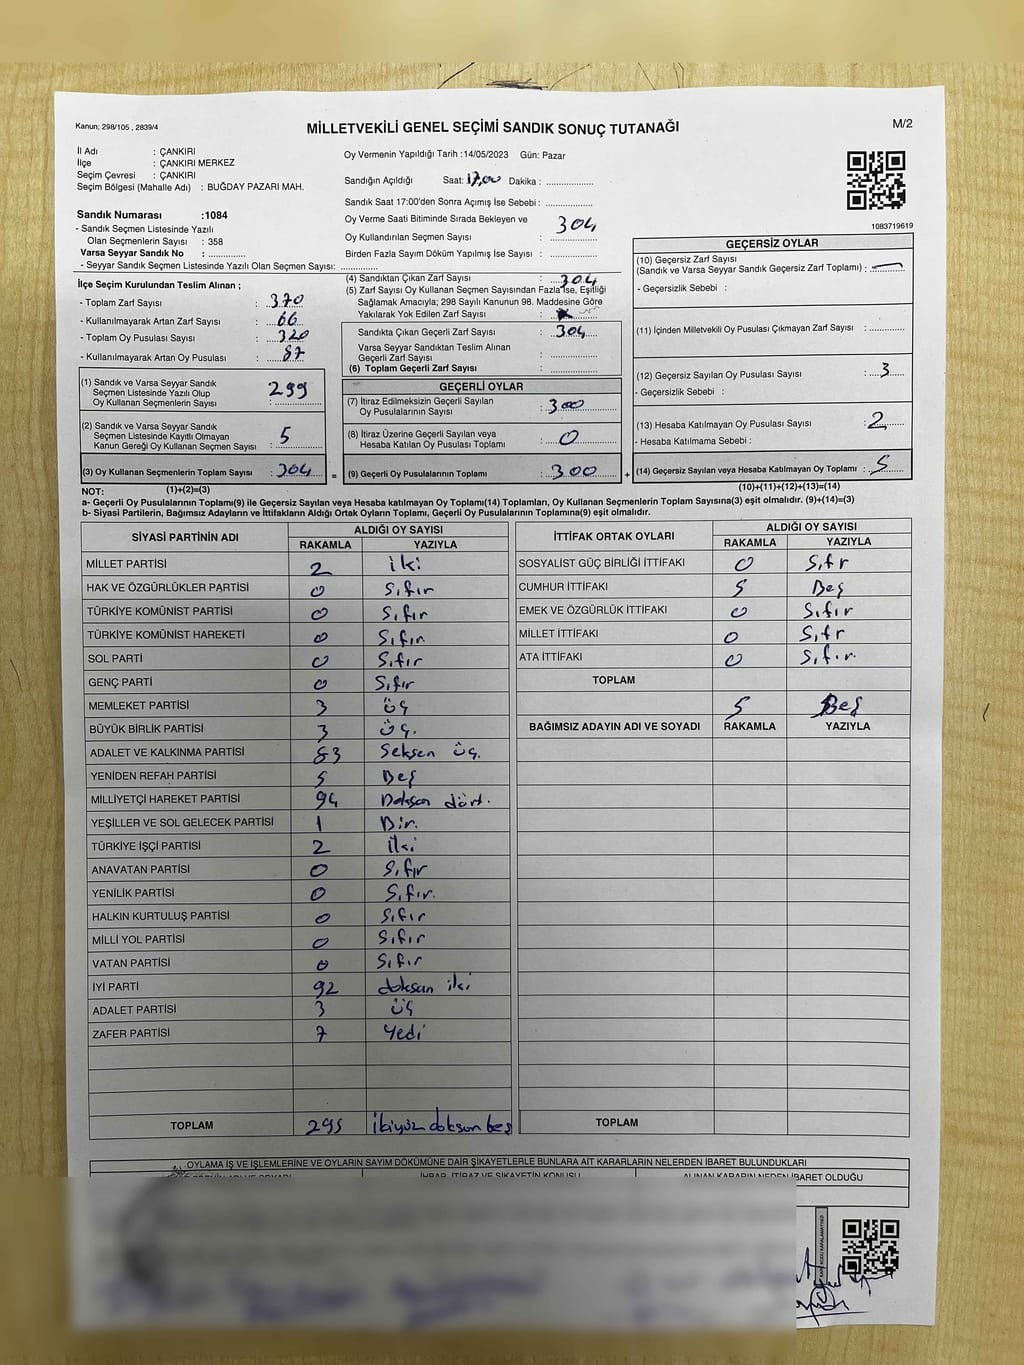 Kanun; 298/105 , 2839/4
MİLLETVEKİLİ GENEL SEÇİMİ SANDIK SONUÇ TUTANAĞI
M/2
İl Adı : ÇANKIRI
İlçe : ÇANKIRI MERKEZ
Seçim Çevresi : ÇANKIRI
Seçim Bölgesi (Mahalle Adı) : BUĞDAY PAZARI MAH.
Sandık Numarası :1084
- Sandık Seçmen Listesinde Yazılı
Olan Seçmenlerin Sayısı : 358
Varsa Seyyar Sandık No : ..............
- Seyyar Sandık Seçmen Listesinde Yazılı Olan Seçmen Sayısı: ..............
İlçe Seçim Kurulundan Teslim Alınan ;
- Toplam Zarf Sayısı : 370
- Kullanılmayarak Artan Zarf Sayısı : 66
- Toplam Oy Pusulası Sayısı : 320
- Kullanılmayarak Artan Oy Pusulası : 87
(1) Sandık ve Varsa Seyyar Sandık
Seçmen Listesinde Yazılı Olup
Oy Kullanan Seçmenlerin Sayısı : 299
(2) Sandık ve Varsa Seyyar Sandık
Seçmen Listesinde Kayıtlı Olmayan
Kanun Gereği Oy Kullanan Seçmen Sayısı : 5
(3) Oy Kullanan Seçmenlerin Toplam Sayısı : 304
(1)+(2)=(3)
Oy Vermenin Yapıldığı Tarih :14/05/2023 Gün: Pazar
Sandığın Açıldığı Saat: 17,00 Dakika : ..............
Sandık Saat 17:00'den Sonra Açımış İse Sebebi : ..............
Oy Verme Saati Bitiminde Sırada Bekleyen ve
Oy Kullandırılan Seçmen Sayısı : 304
Birden Fazla Sayım Döküm Yapılmış İse Sayısı : ..............
(4) Sandıktan Çıkan Zarf Sayısı : 304
(5) Zarf Sayısı Oy Kullanan Seçmen Sayısından Fazla İse, Eşitliği
Sağlamak Amacıyla; 298 Sayılı Kanunun 98. Maddesine Göre
Yakılarak Yok Edilen Zarf Sayısı :
Sandıkta Çıkan Geçerli Zarf Sayısı : 304
Varsa Seyyar Sandıktan Teslim Alınan
Geçerli Zarf Sayısı : ..............
(6) Toplam Geçerli Zarf Sayısı : ..............
GEÇERLİ OYLAR
(7) İtiraz Edilmeksizin Geçerli Sayılan
Oy Pusulalarının Sayısı : 300
(8) İtiraz Üzerine Geçerli Sayılan veya
Hesaba Katılan Oy Pusulası Toplamı : 0
= (9) Geçerli Oy Pusulalarının Toplamı : 300 +
1083719619
GEÇERSİZ OYLAR
(10) Geçersiz Zarf Sayısı
(Sandık ve Varsa Seyyar Sandık Geçersiz Zarf Toplamı) : —
- Geçersizlik Sebebi :
(11) İçinden Milletvekili Oy Pusulası Çıkmayan Zarf Sayısı : ..............
(12) Geçersiz Sayılan Oy Pusulası Sayısı : 3
- Geçersizlik Sebebi :
(13) Hesaba Katılmayan Oy Pusulası Sayısı : 2
- Hesaba Katılmama Sebebi :
(14) Geçersiz Sayılan veya Hesaba Katılmayan Oy Toplamı : 5
(10)+(11)+(12)+(13)=(14)
NOT:
a- Geçerli Oy Pusulalarının Toplamı(9) ile Geçersiz Sayılan veya Hesaba katılmayan Oy Toplamı(14) Toplamları, Oy Kullanan Seçmenlerin Toplam Sayısına(3) eşit olmalıdır. (9)+(14)=(3)
b- Siyasi Partilerin, Bağımsız Adayların ve İttifakların Aldığı Ortak Oyların Toplamı, Geçerli Oy Pusulalarının Toplamına(9) eşit olmalıdır.
SİYASİ PARTİNİN ADI ALDIĞI OY SAYISI
RAKAMLA YAZIYLA
MİLLET PARTİSİ 2 iki
HAK VE ÖZGÜRLÜKLER PARTİSİ 0 Sıfır
TÜRKİYE KOMÜNİST PARTİSİ 0 Sıfır
TÜRKİYE KOMÜNİST HAREKETİ 0 Sıfır
SOL PARTİ 0 Sıfır
GENÇ PARTİ 0 Sıfır
MEMLEKET PARTİSİ 3 üç
BÜYÜK BİRLİK PARTİSİ 3 üç.
ADALET VE KALKINMA PARTİSİ 83 Seksen üç.
YENİDEN REFAH PARTİSİ 5 Beş
MİLLİYETÇİ HAREKET PARTİSİ 94 Doksan dört.
YEŞİLLER VE SOL GELECEK PARTİSİ 1 Bir.
TÜRKİYE İŞÇİ PARTİSİ 2 iki
ANAVATAN PARTİSİ 0 Sıfır
YENİLİK PARTİSİ 0 Sıfır.
HALKIN KURTULUŞ PARTİSİ 0 Sıfır
MİLLİ YOL PARTİSİ 0 Sıfır
VATAN PARTİSİ 0 Sıfır
İYİ PARTİ 92 doksan iki
ADALET PARTİSİ 3 üç
ZAFER PARTİSİ 7 Yedi
TOPLAM 295 ikiyüz doksan beş
İTTİFAK ORTAK OYLARI ALDIĞI OY SAYISI
RAKAMLA YAZIYLA
SOSYALİST GÜÇ BİRLİĞİ İTTİFAKI 0 Sıfr
CUMHUR İTTİFAKI 5 Beş
EMEK VE ÖZGÜRLÜK İTTİFAKI 0 Sıfır
MİLLET İTTİFAKI 0 Sıfr
ATA İTTİFAKI 0 Sıfır.
TOPLAM
5 Beş
BAĞIMSIZ ADAYIN ADI VE SOYADI RAKAMLA YAZIYLA
TOPLAM
OYLAMA İŞ VE İŞLEMLERİNE VE OYLARIN SAYIM DÖKÜMÜNE DAİR ŞİKAYETLERLE BUNLARA AİT KARARLARIN NELERDEN İBARET BULUNDUKLARI
İHBAR, İTİRAZ VE ŞİKAYETİN KONUSU ALINAN KARARIN NEDEN İBARET OLDUĞU